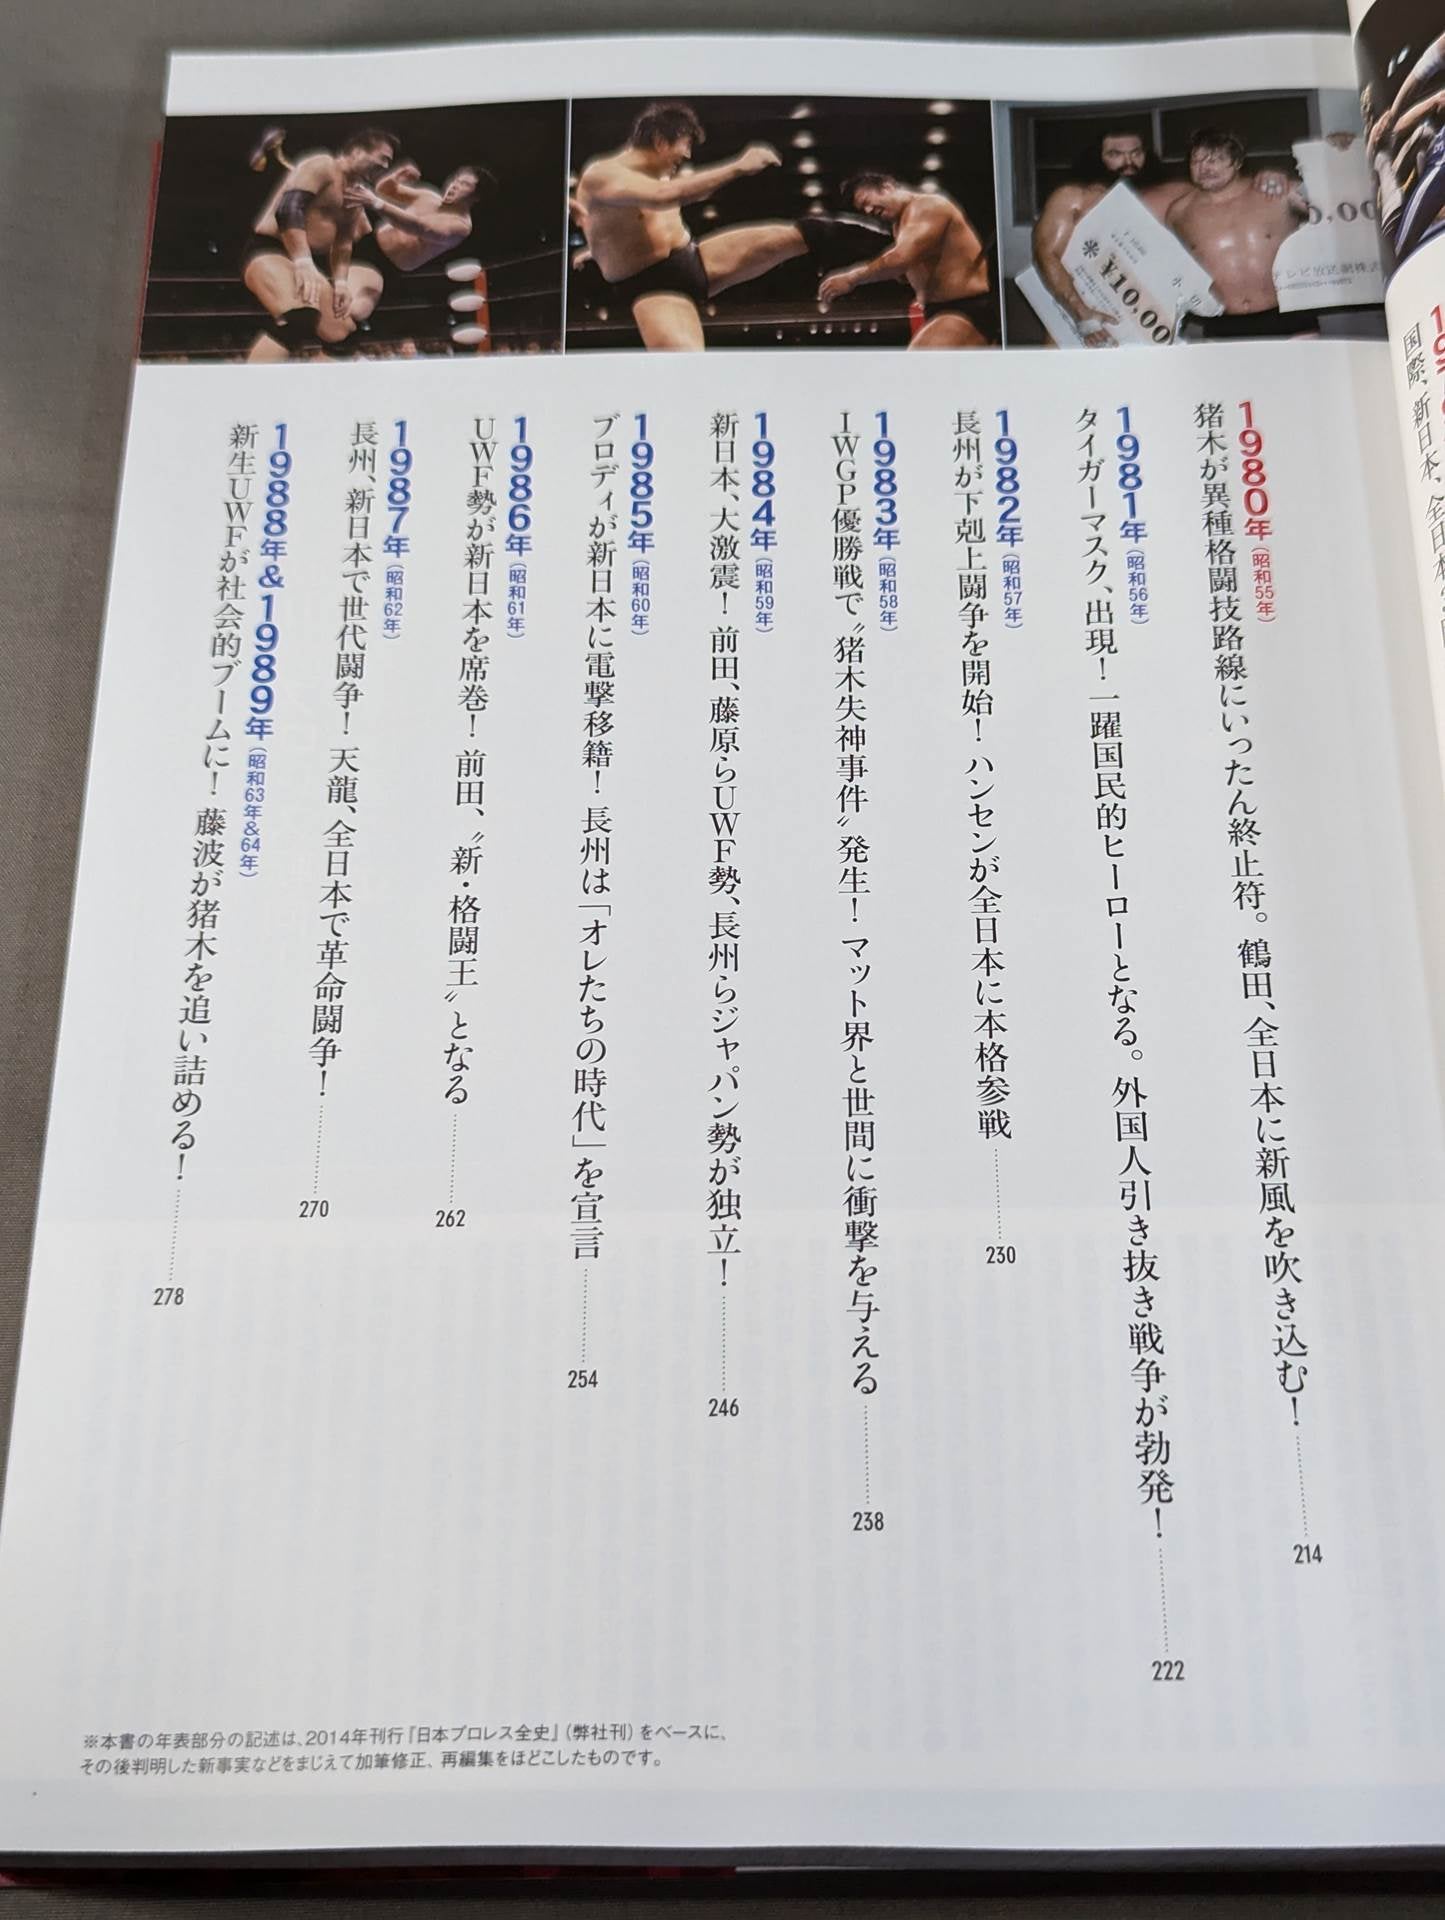 ¥10,000
テレビ放送網株式
1980年(昭和55年)
猪木が異種格闘技路線にいったん終止符。鶴田、全日本に新風を吹き込む!
214
1981年(昭和56年)
タイガーマスク、出現! 一躍国民的ヒーローとなる。外国人引き抜き戦争が勃発!
222
1982年(昭和57年)
長州が下剋上闘争を開始! ハンセンが全日本に本格参戦
230
1983年(昭和58年)
IWGP優勝戦で〝猪木失神事件〟発生! マット界と世間に衝撃を与える
238
1984年(昭和59年)
新日本、大激震! 前田、藤原らUWF勢、長州らジャパン勢が独立!
246
1985年(昭和60年)
ブロディが新日本に電撃移籍! 長州は「オレたちの時代」を宣言
254
1986年(昭和61年)
UWF勢が新日本を席巻! 前田、〝新・格闘王〟となる
262
1987年(昭和62年)
長州、新日本で世代闘争! 天龍、全日本で革命闘争!
270
1988年&1989年(昭和63年&64年)
新生UWFが社会的ブームに! 藤波が猪木を追い詰める!
278
※本書の年表部分の記述は、2014年刊行『日本プロレス全史』(弊社刊)をベースに、
その後判明した新事実などをまじえて加筆修正、再編集をほどこしたものです。
国際、新日本、全日本